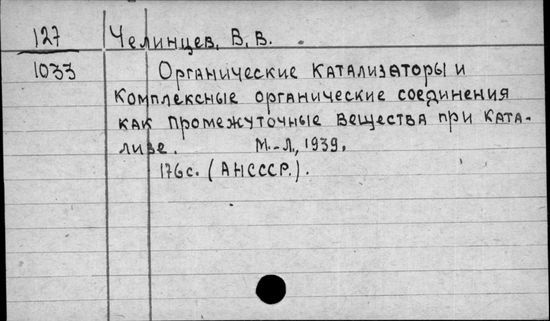 127 Челинцев, В. В.
1033 Органические катализаторы и
комплексные органические соединения
как промежуточные вещества при ката-
лизе. М.-Л., 1939.
176с. (АНСССР.).